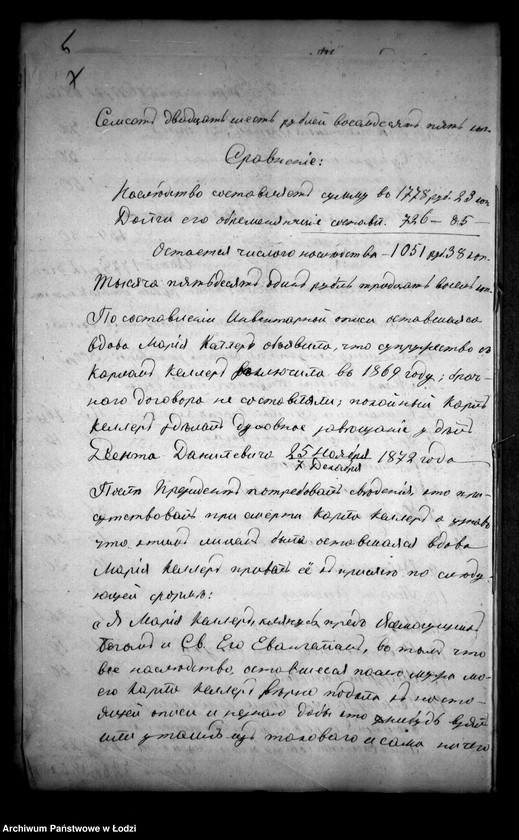 6
Семисотъ двадцать шесть рублей восемдесятъ пять коп.
Сравненіе:
Наслѣдство составляетъ сумму въ 1778 руб. 23 коп.
Долги его обременяющіе составл. 726 — 85 —
Остается чистаго наслѣдства — 1051 руб 38 коп.
Тысяча пятьдесятъ одинъ рубль тридцать восемь коп.
По составленіи Инвентарной описи оставшаяся
вдова Марія Келлеръ объявила, что супружество съ
Карломъ Келлеръ заключила въ 1869 году; брач-
наго договора не составляли; покойный Карлъ
Келлеръ сдѣлалъ духовное завѣщаніе у
Даниловича 25 Ноября / 7 Декабря 1872 года
Посемъ Президентъ потребовалъ свѣденія, кто при-
сутствовалъ при смерти Карла Келлеръ а узнавъ
что этимъ лицемъ была оставшаяся вдова
Марія Келлеръ привелъ её къ присягѣ по слѣду-
ющей формѣ:
„Я Марія Келлеръ, клянусь предъ Всемогущимъ
Богомъ и Св. Его Евангеліемъ, въ томъ что
все наслѣдство оставшееся послѣ мужа мо-
его Карла Келлеръ вѣрно подала къ насто-
ящей описи и незнаю дабы кто нибудь взялъ
или утаилъ изъ таковаго и сама ничего
Archiwum Państwowe w Łodzi